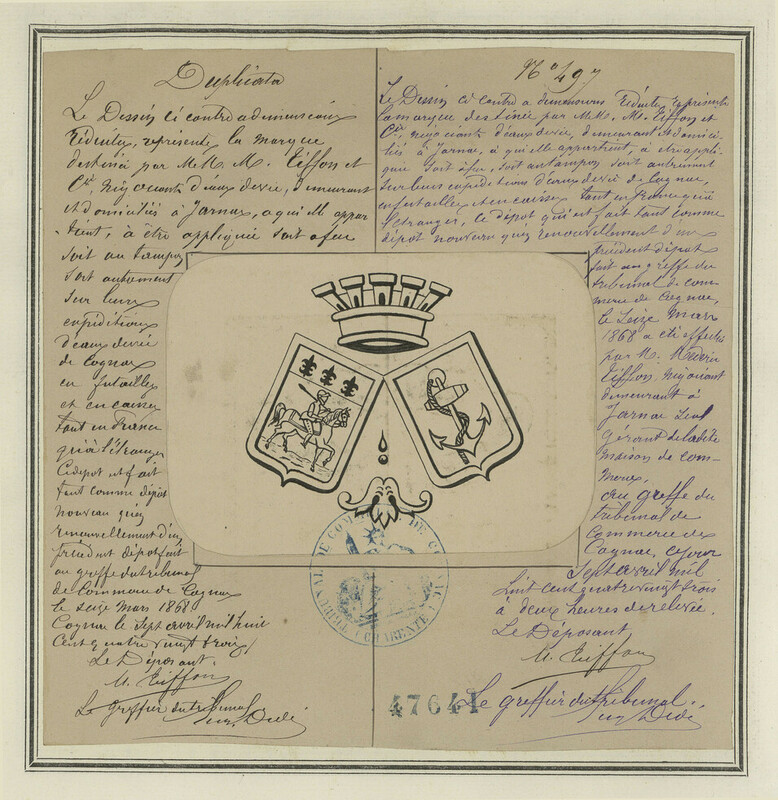 Duplicata
Le Dessin ci contre a demi mesures
réduites, représente la marque
destinée par MM. M. Tiffon et
Cie, négociants d'eaux de vie, demeurant
et domiciliés à Jarnac, a qui elle appar
tient, à être appliquée soit a feu
soit au tampon
soit autrement
sur leurs
expéditions
d'eaux de vie
de Cognac
en futailles
et en caisses
tant en France
qu'à l'étranger
Ce dépot est fait
tant comme dépôt
nouveau qu'en
renouvellement d'un
précédent dépot fait
au greffe du tribunal
de Commerce de Cognac
le seize Mars 1868
Cognac le sept avril mil huit
Cent quatre vingt trois
Le Déposant.
M. Tiffon
Le greffier du Tribunal
No 497
Le Dessin ci contre a demi mesures réduites représente
la marque destinée par MM. M. Tiffon et
Cie, négociants d'eaux de vie, demeurant et domici-
liés à Jarnac, à qui elle appartient, à être appli-
quée soit à feu, soit au tampon soit autrement
sur leurs expéditions d'eaux de vie de Cognac,
en futailles et en caisses tant en France qu'à
l'étranger, le dépot qui est fait tant comme
dépot nouveau qu'en renouvellement d'un
précédent dépot
fait au greffe du
tribunal de com-
merce de Cognac,
le Seize Mars
1868 a été effectué
par M. Médéric
Tiffon, négociant
demeurant à
Jarnac seul
gérant de la dite
maison de com-
merce,
au greffe du
tribunal de
Commerce de
Cognac, ce jour
Sept avril mil
huit cent quatre vingt trois
à deux heures de relevée.
Le Déposant
M. Tiffon
Le greffier du Tribunal.
TRIBUNAL DE COMMERCE DE COGNAC
CHARENTE
47641